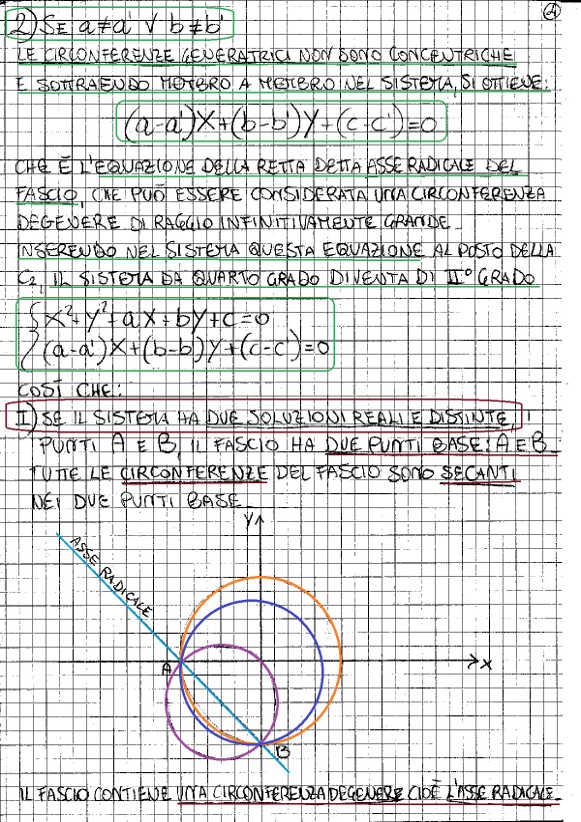 4
2) SE a≠a' V b≠b'
LE CIRCONFERENZE GENERATRICI NON SONO CONCENTRICHE
E SOTTRAENDO MEMBRO A MEMBRO NEL SISTEMA, SI OTTIENE:
(a-a')X+(b-b')Y+(c-c')=0
CHE È L'EQUAZIONE DELLA RETTA DETTA ASSE RADICALE DEL
FASCIO, CHE PUÒ ESSERE CONSIDERATA UNA CIRCONFERENZA
DEGENERE DI RAGGIO INFINITIVAMENTE GRANDE.
INSERENDO NEL SISTEMA QUESTA EQUAZIONE AL POSTO DELLA
C2, IL SISTEMA DA QUARTO GRADO DIVENTA DI II° GRADO
X²+Y²+aX+bY+c=0
(a-a')X+(b-b')Y+(c-c')=0
COSÌ CHE:
I) SE IL SISTEMA HA DUE SOLUZIONI REALI E DISTINTE, I
PUNTI A E B, IL FASCIO HA DUE PUNTI BASE: A E B.
TUTTE LE CIRCONFERENZE DEL FASCIO SONO SECANTI
NEI DUE PUNTI BASE.
Y
ASSE RADICALE
A
X
B
IL FASCIO CONTIENE UNA CIRCONFERENZA DEGENERE CIOÈ L'ASSE RADICALE.